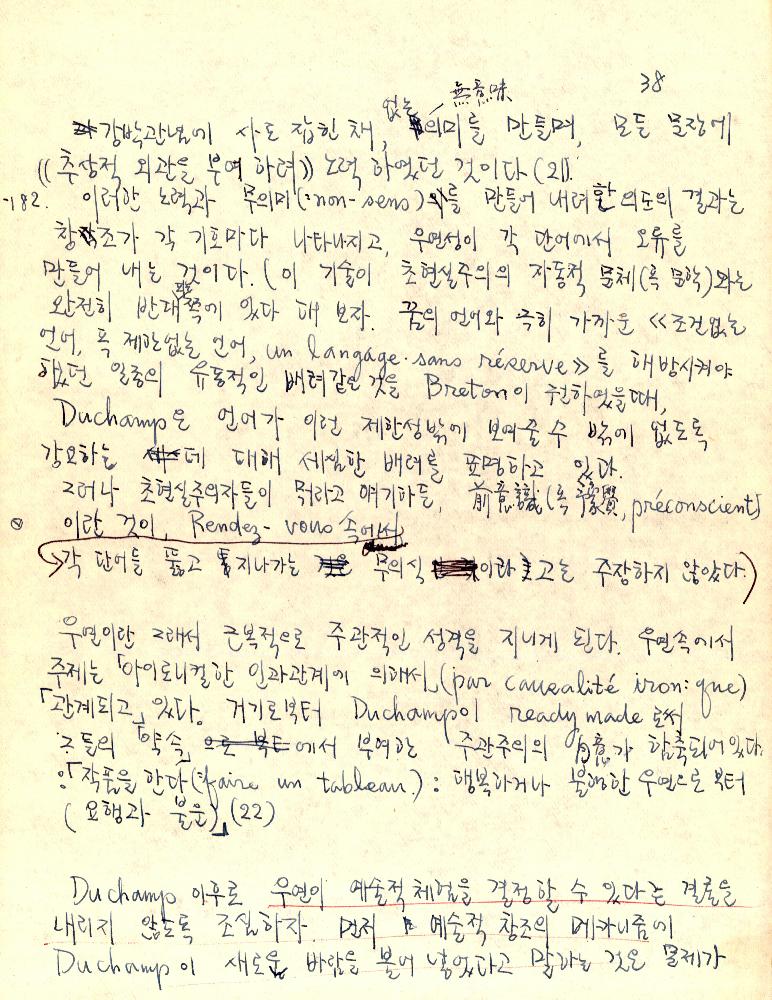 38
없는 無意味
강박관념에 사로 잡힌 채, 의미를 만들며, 모든 문장에
《추상적 외관을 부여 하려》 노력 하였던 것이다 (21).
-182. 이러한 노력과 무의미(=non-sens)를 만들어 내려할 의도의 결과는
창조가 각 기호마다 나타나지고, 우연성이 각 단어에서 오류를
만들어 내는 것이다. (이 기술이 초현실주의의 자동적 문체(혹 문학)와는
완전히 반대쪽에 있다 해 보자. 꿈의 언어와 극히 가까운 《조건없는
언어, 혹 제한없는 언어, un langage sans réserve》를 해방시켜야
했던 일종의 유동적인 배려같은 것을 Breton이 원하였을때,
Duchamp은 언어가 이런 제한성밖에 보여줄 수 밖에 없도록
강요하는 데 대해 세심한 배려를 표명하고 있다.
그러나 초현실주의자들이 뭐라고 얘기하든, 前意識(혹 豫覺, préconscient)
이란 것이, Rendez-vous 속에서
각 단어를 뚫고 지나가는 무의식 이라고는 주장하지 않았다.)
우연이란 그래서 근복적으로 주관적인 성격을 지니게 된다. 우연속에서
주제는 「아이로니컬한 인과관계에 의해서」 (par causalité ironique)
「관계되고」 있다. 거기로부터 Duchamp이 ready made 로써
그들의 「약속」 에서 부여한 주관주의의 自意가 함축되어있다.
:「작품을 한다(faire un tableau): 행복하거나 불행한 우연으로 부터
(요행과 불운)」 (22)
Duchamp 이후로 우연이 예술적 체험을 결정할 수 있다는 결론을
내리지 않도록 조심하자. 먼저 예술적 창조의 메카니즘에
Duchamp이 새로운 바람을 불어 넣었다고 말하는 것은 문제가